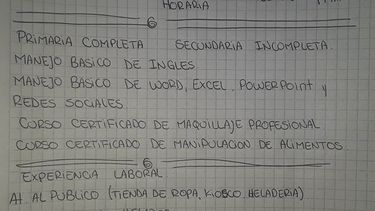 HORARIA
6
PRIMARIA COMPLETA SECUNDARIA INCOMPLETA.
MANEJO BASICO DE INGLES
MANEJO BASICO DE WORD, EXCEL, POWERPOINT Y
REDES SOCIALES
CURSO CERTIFICADO DE MAQUILLAJE PROFESIONAL
CURSO CERTIFICADO DE MANIPULACION DE ALIMENTOS
6
EXPERIENCIA LABORAL
AT. AL PUBLICO (TIENDA DE ROPA, KIOSCO, HELADERIA)